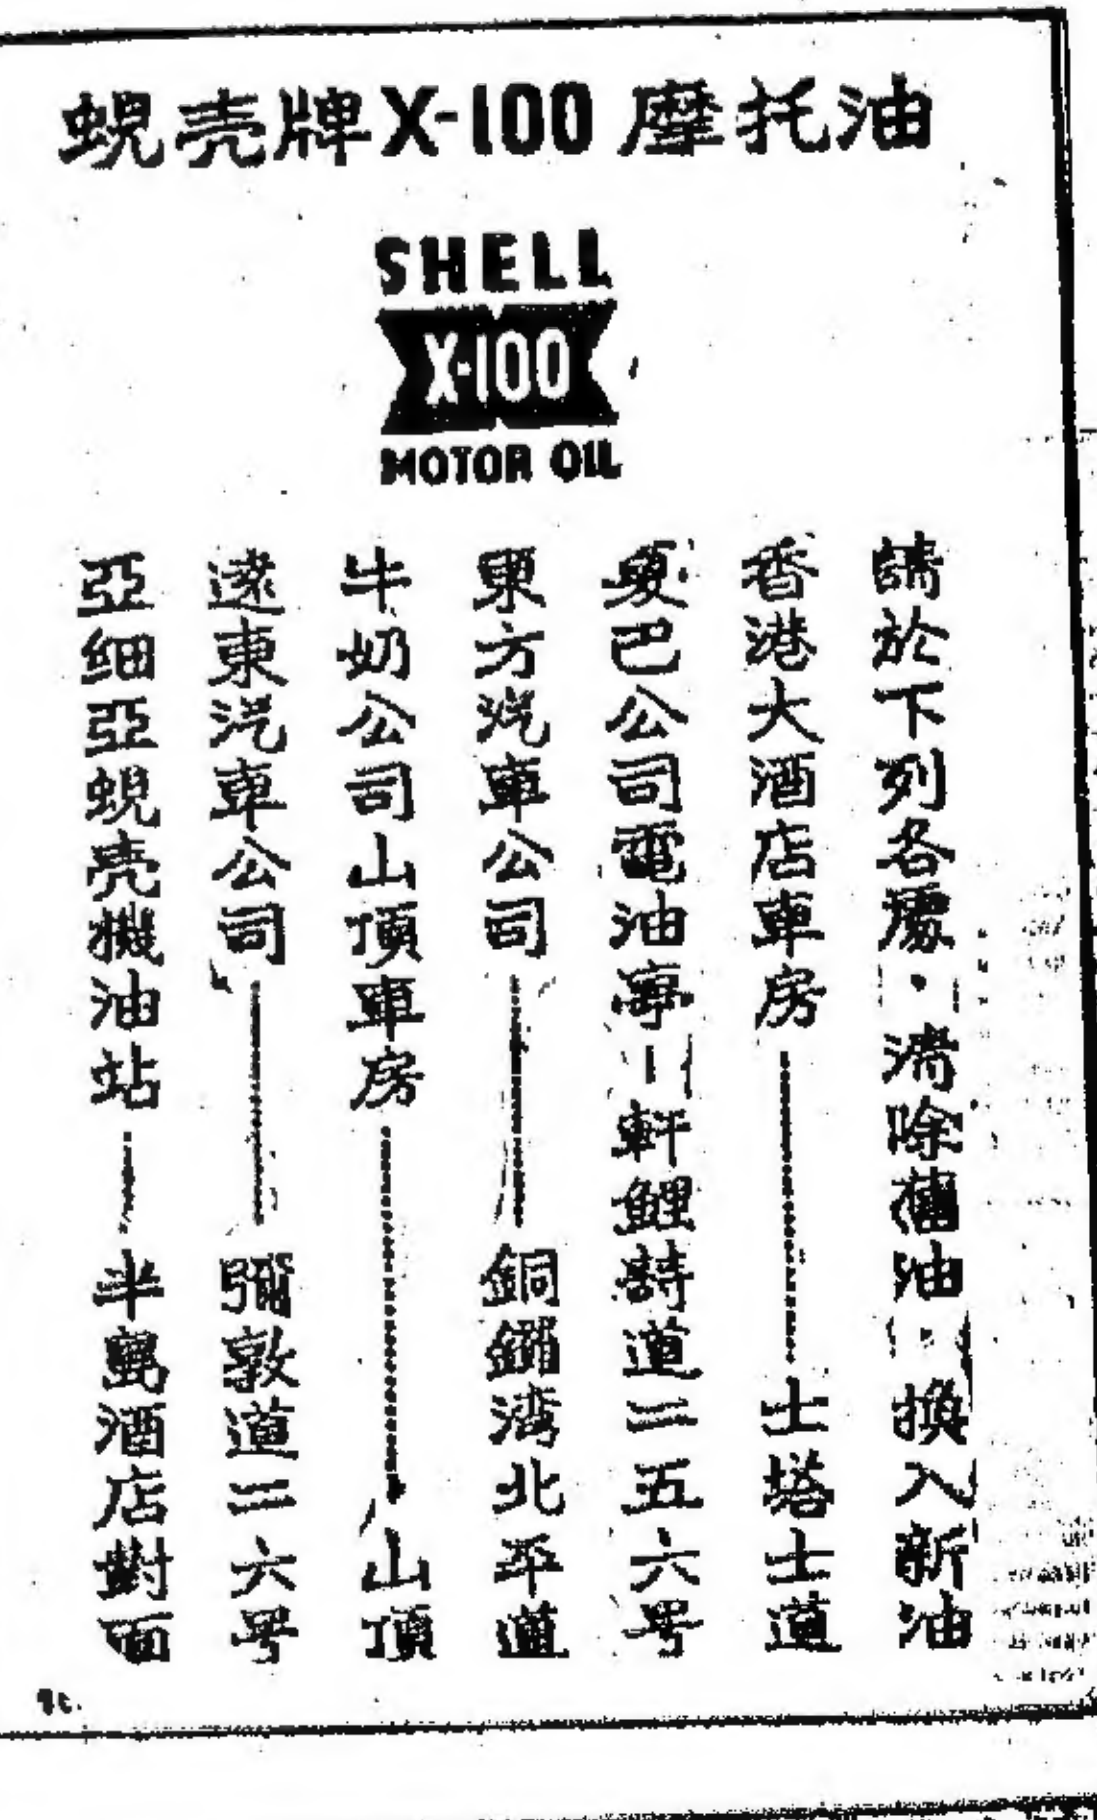 蜆壳牌X-100摩托油
SHELL
X-100
MOTOR OIL
請於下列各處·清除舊油·換入新油
香港大酒店車房——士塔士道
夏巴公司電油亭—軒鯉詩道二五六号
東方汽車公司——銅鑼湾北平道
牛奶公司山頂車房——山頂
遠東汽車公司——彌敦道二六号
亞细亞蜆壳機油站——半島酒店對面